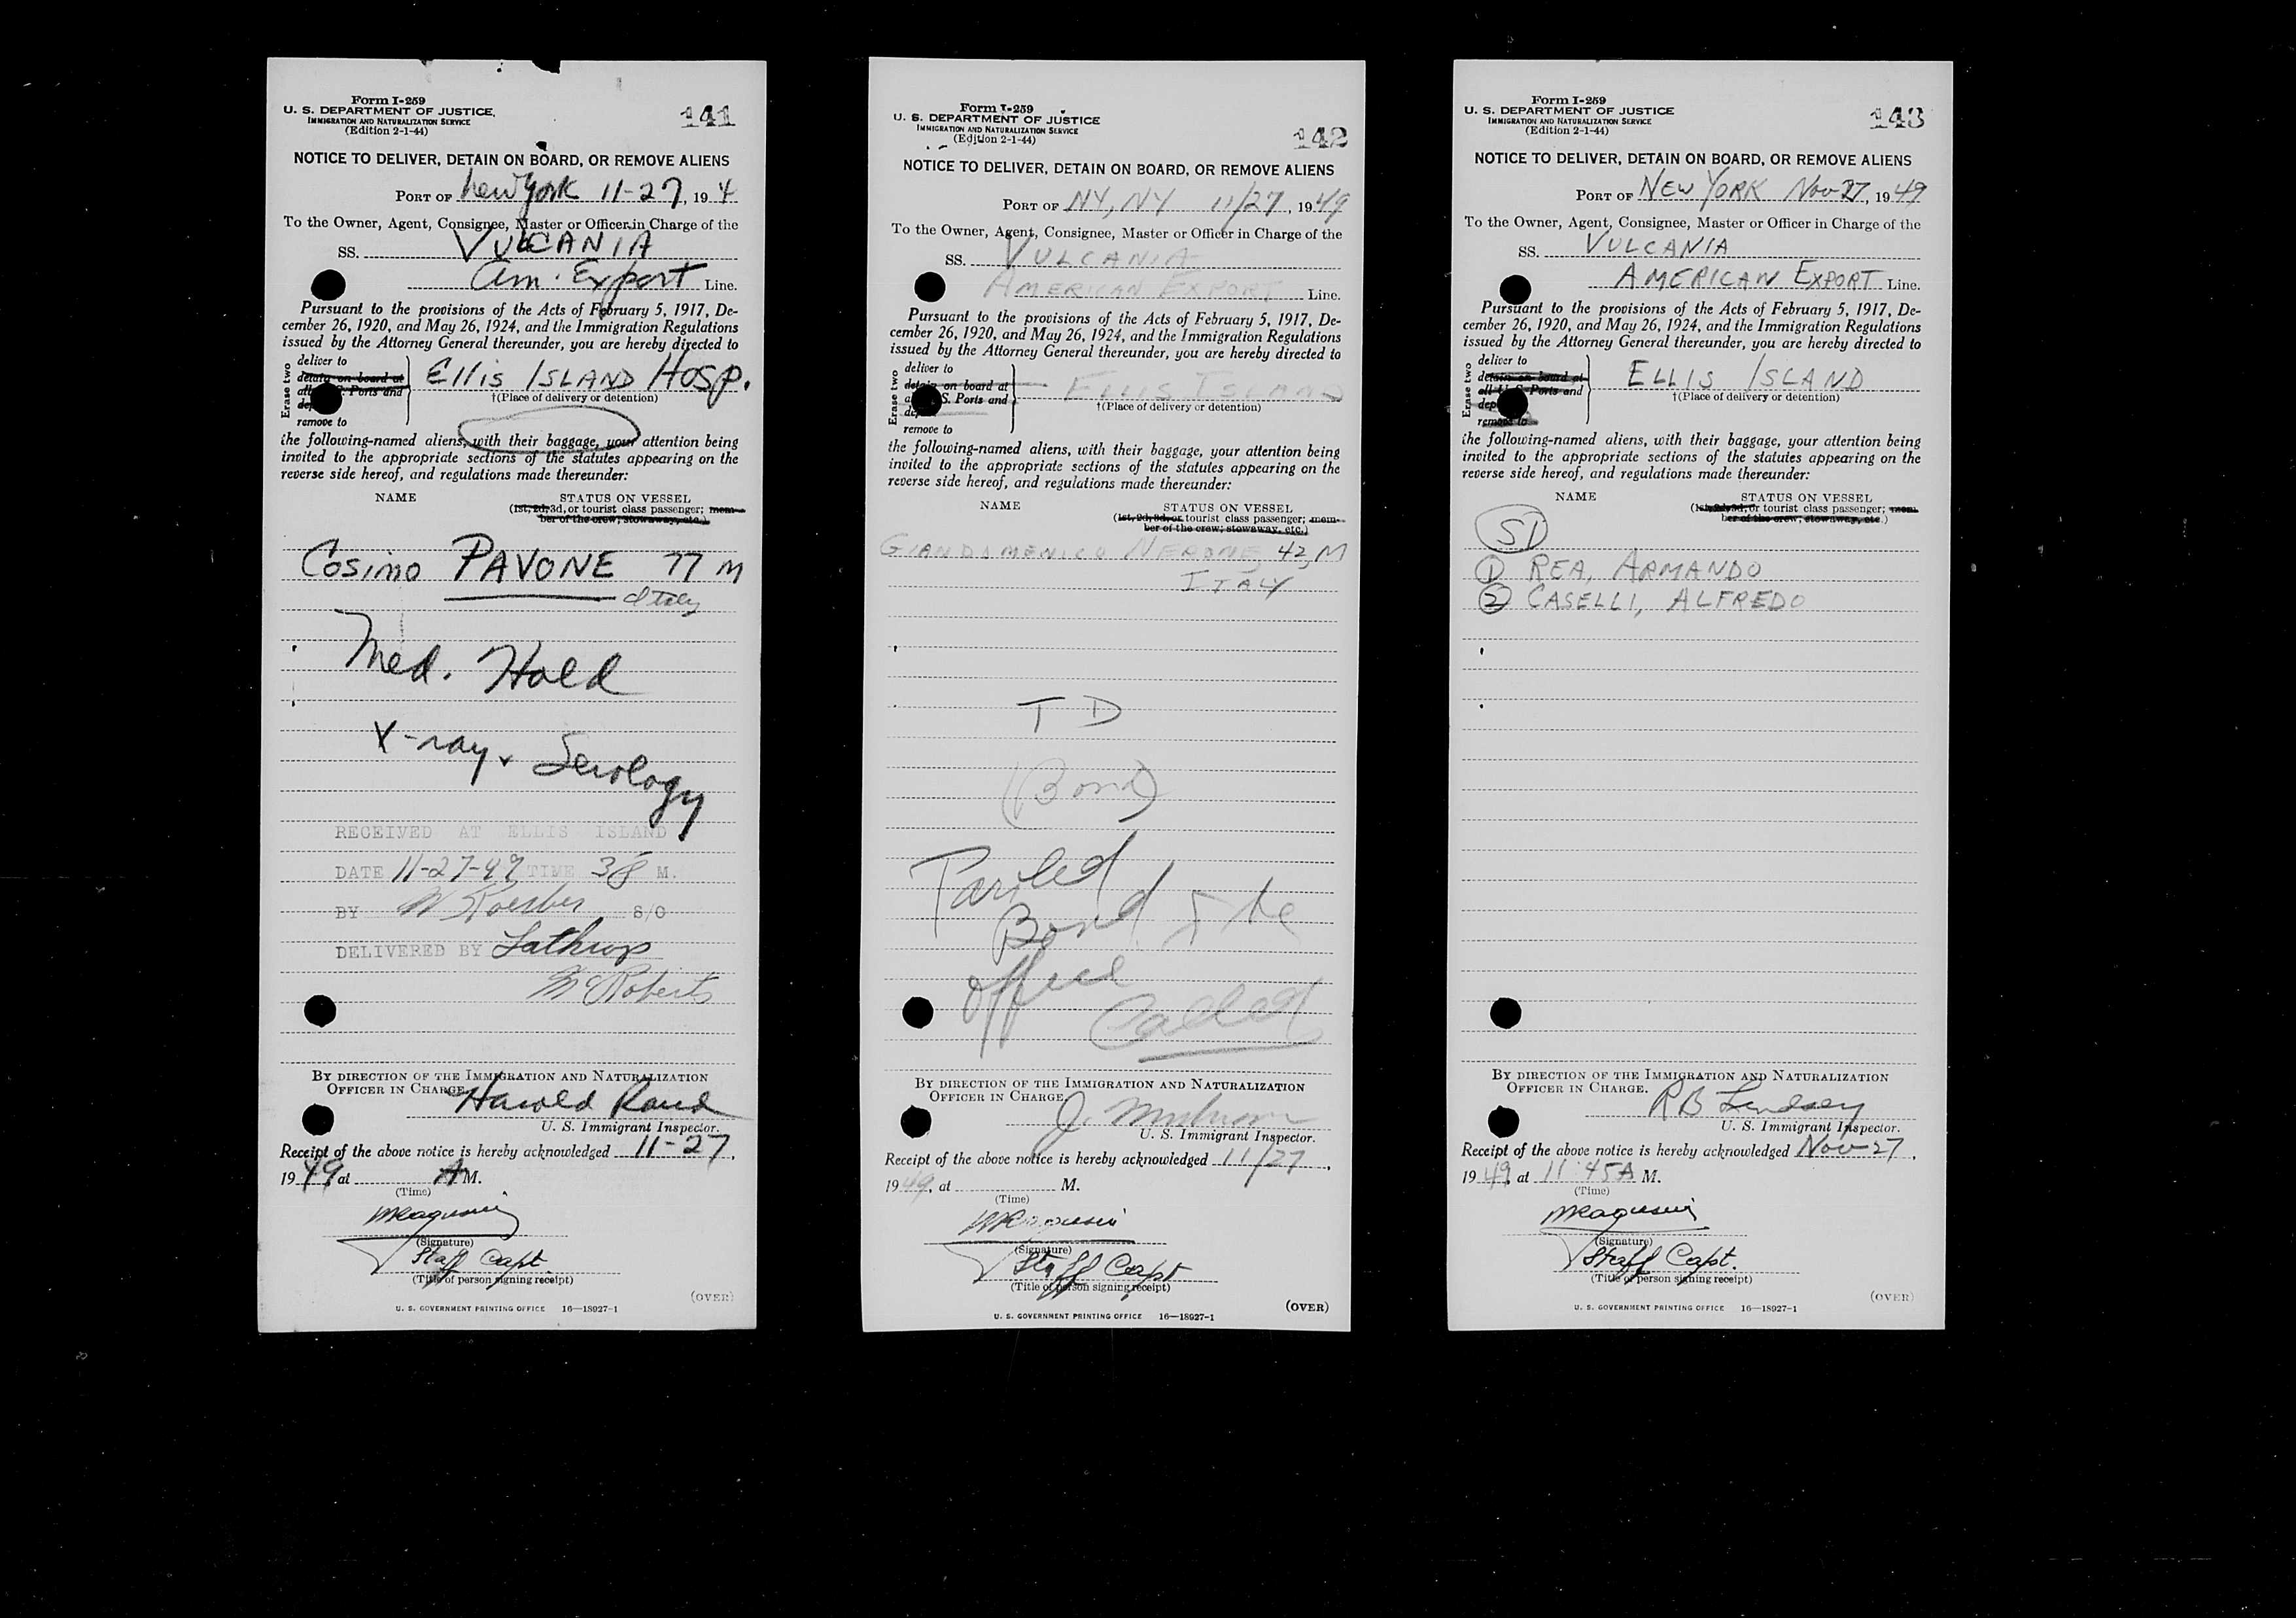 Form I-259
U. S. DEPARTMENT OF JUSTICE,
IMMIGRATION AND NATURALIZATION SERVICE
(Edition 2-1-44)
141
NOTICE TO DELIVER, DETAIN ON BOARD, OR REMOVE ALIENS
PORT OF New York 11-27, 194
To the Owner, Agent, Consignee, Master or Officer in Charge of the
SS. VULCANIA
Am. Export Line.
Pursuant to the provisions of the Acts of February 5, 1917, De-
cember 26, 1920, and May 26, 1924, and the Immigration Regulations
issued by the Attorney General thereunder, you are hereby directed to
Erase two
deliver to
detain on board at
all U. S. Ports and
remove to
Ellis Island Hosp.
†(Place of delivery or detention)
the following-named aliens, with their baggage, your attention being
invited to the appropriate sections of the statutes appearing on the
reverse side hereof, and regulations made thereunder:
NAME STATUS ON VESSEL
(1st, 2d, 3d, or tourist class passenger; mem-
ber of the crew; stowaway, etc.)
Cosimo PAVONE 77 M
Italy
Med. Hold
X-ray, Serology
RECEIVED AT ELLIS ISLAND
DATE 11-27-49 TIME M.
BY S/O
DELIVERED BY Lathrop
McRoberts
BY DIRECTION OF THE IMMIGRATION AND NATURALIZATION
OFFICER IN CHARGE.
Harold Rand
U. S. Immigrant Inspector.
Receipt of the above notice is hereby acknowledged 11-27,
1949 at A M.
(Time)
(Signature)
Staff Capt.
(Title of person signing receipt)
(OVER)
U. S. GOVERNMENT PRINTING OFFICE 16—18927-1
Form I-259
U. S. DEPARTMENT OF JUSTICE
IMMIGRATION AND NATURALIZATION SERVICE
(Edition 2-1-44)
142
NOTICE TO DELIVER, DETAIN ON BOARD, OR REMOVE ALIENS
PORT OF NY, NY 11/27, 1949
To the Owner, Agent, Consignee, Master or Officer in Charge of the
SS. VULCANIA
AMERICAN EXPORT Line.
Pursuant to the provisions of the Acts of February 5, 1917, De-
cember 26, 1920, and May 26, 1924, and the Immigration Regulations
issued by the Attorney General thereunder, you are hereby directed to
Erase two
deliver to
detain on board at
S. Ports and
remove to
ELLIS ISLAND
†(Place of delivery or detention)
the following-named aliens, with their baggage, your attention being
invited to the appropriate sections of the statutes appearing on the
reverse side hereof, and regulations made thereunder:
NAME STATUS ON VESSEL
(1st, 2d, 3d, or tourist class passenger; mem-
ber of the crew; stowaway, etc.)
GIANDOMENICO NERONE, 42, M
ITALY
T D
(Bond)
Paroled
Bond
office
Called
BY DIRECTION OF THE IMMIGRATION AND NATURALIZATION
OFFICER IN CHARGE.
U. S. Immigrant Inspector.
Receipt of the above notice is hereby acknowledged 11/27,
1949, at M.
(Time)
(Signature)
Staff Capt
(Title of person signing receipt)
(OVER)
U. S. GOVERNMENT PRINTING OFFICE 16—18927-1
Form I-259
U. S. DEPARTMENT OF JUSTICE
IMMIGRATION AND NATURALIZATION SERVICE
(Edition 2-1-44)
143
NOTICE TO DELIVER, DETAIN ON BOARD, OR REMOVE ALIENS
PORT OF NEW YORK Nov 27, 1949
To the Owner, Agent, Consignee, Master or Officer in Charge of the
SS. VULCANIA
AMERICAN EXPORT Line.
Pursuant to the provisions of the Acts of February 5, 1917, De-
cember 26, 1920, and May 26, 1924, and the Immigration Regulations
issued by the Attorney General thereunder, you are hereby directed to
Erase two
deliver to
detain on board at
all U. S. Ports and
remove to
ELLIS ISLAND
†(Place of delivery or detention)
the following-named aliens, with their baggage, your attention being
invited to the appropriate sections of the statutes appearing on the
reverse side hereof, and regulations made thereunder:
NAME STATUS ON VESSEL
(1st, 2d, 3d, or tourist class passenger; mem-
ber of the crew; stowaway, etc.)
SI
1 REA, ARMANDO
2 CASELLI, ALFREDO
BY DIRECTION OF THE IMMIGRATION AND NATURALIZATION
OFFICER IN CHARGE.
RB Lindsey
U. S. Immigrant Inspector.
Receipt of the above notice is hereby acknowledged Nov-27,
1949, at 11:45A M.
(Time)
(Signature)
Staff Capt.
(Title of person signing receipt)
(OVER)
U. S. GOVERNMENT PRINTING OFFICE 16—18927-1